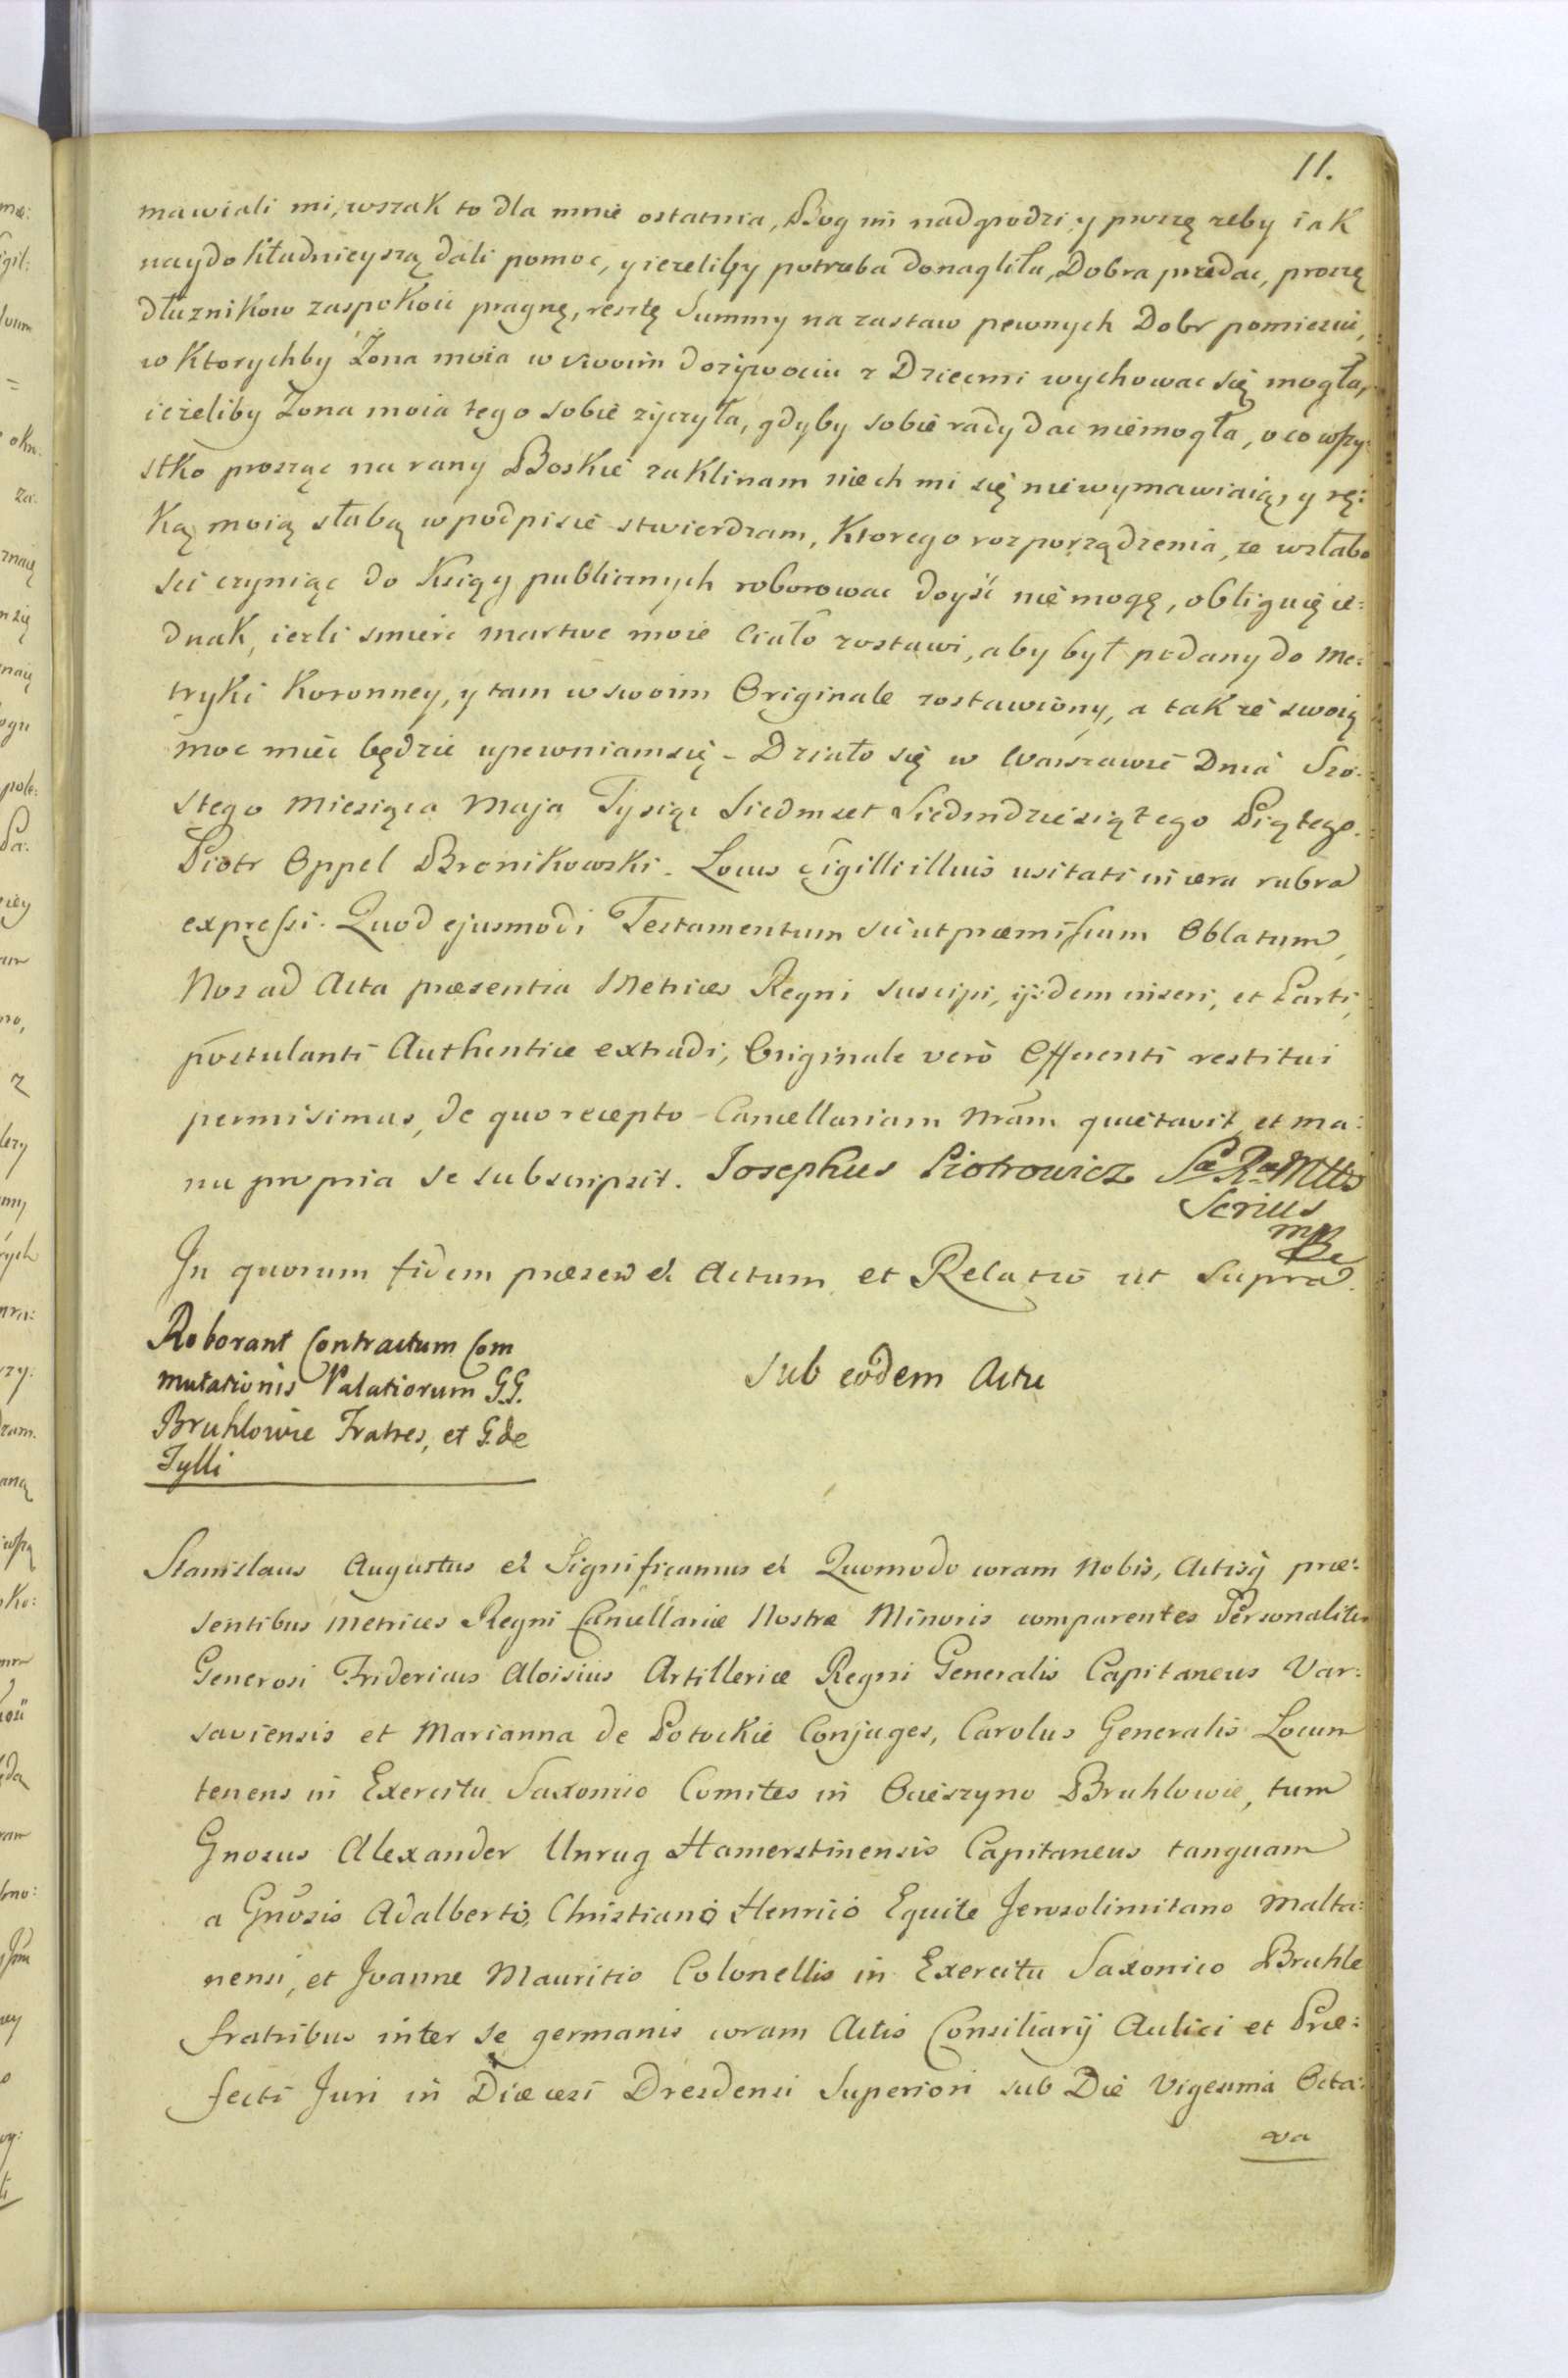 11.
mawiali mi, wszak to dla mnie ostatnia, Bog mi nadgrodzi, y proszę zeby iak
naydokładnieyszą dali pomoc, y ieżeliby potrzeba donagliła, Dobra przedac, proszę
dłuznikow zaspokoić pragnę, resztę Summy na zastaw pewnych Dobr pomieścić,
w Ktorychby Żona moia w swoim dozywociu z Dziecmi wychowac się mogła,
ieżeliby Zona moia tego sobie zÿczyła, gdyby sobie rady dac niemogła, o co wszy:
stko prosząc na rany Boskie zaklinam niech mi się niewymawiaią, y rę:
ką moią słabą w podpisie stwierdzam, Ktorego rozporządzenia, ze w słabo
sci czyniąc do Xsiąg publicznych roborowac doyść nie mogę, obliguię ie:
dnak, iezli smierc martwe moie Ciało zostawi, aby był podany do Me:
tryki Koronney, y tam w swoim Originale zostawiony, a tak że swoią
moc mieć będzie upewniam się - Działo się w Warszawie Dnia Szo:
stego Miesiąca Maja Tysiąc Siedmset Siedmdziesiątego Piątego.
Piotr Oppel Bronikowski. Locus Sigilli illius usitati in cera rubra
expressi. Quod ejusmodi Testamentum sic ut præmissum Oblatum,
Nos ad Acta præsentia Metrices Regni suscipi, ijsdem inseri, et Parti,
postulanti Authentice extradi, Originale verò Offerenti restitui
permisimus, de quo recepto Cancellariam Nram quietavit, et ma:
nu propria se subscripsit. Josephus Piotrowicz Sæ Ræ Mttis
Scrius
mp
In quorum fidem præsens et Actum et Relatio ut Supra.
Roborant Contractum Com
mutationis Palatiorum G.G.
Bruhlowie Fratres, et G. de
Tylli
Sub eodem Actu
Stanislaus Augustus et Significamus et Quomodo coram Nobis, Actisq præ:
sentibus Metrices Regni Cancellariæ Nostræ Minoris comparentes Personaliter
Generosi Fridericus Aloisius Artilleriæ Regni Generalis Capitaneus Var:
saviensis et Marianna de Potockie Conjuges, Carolus Generalis Locum
tenens in Exercitu Saxonico Comites in Ocieszyno Bruhlowie, tum
Gnosus Alexander Unrug Hamerstinensis Capitaneus tanquam
a Gnosis Adalberto, Christiano Henrico Equite Jerosolimitano Malta:
nensi, et Joanne Mauritio Colonellis in Exercitu Saxonico Bruhle
fratribus inter se germanis coram Actis Consiliarij Aulici et Præ:
fecti Juri in Diæcesi Dresdensi Superiori sub Die Vigesima Octa:
va